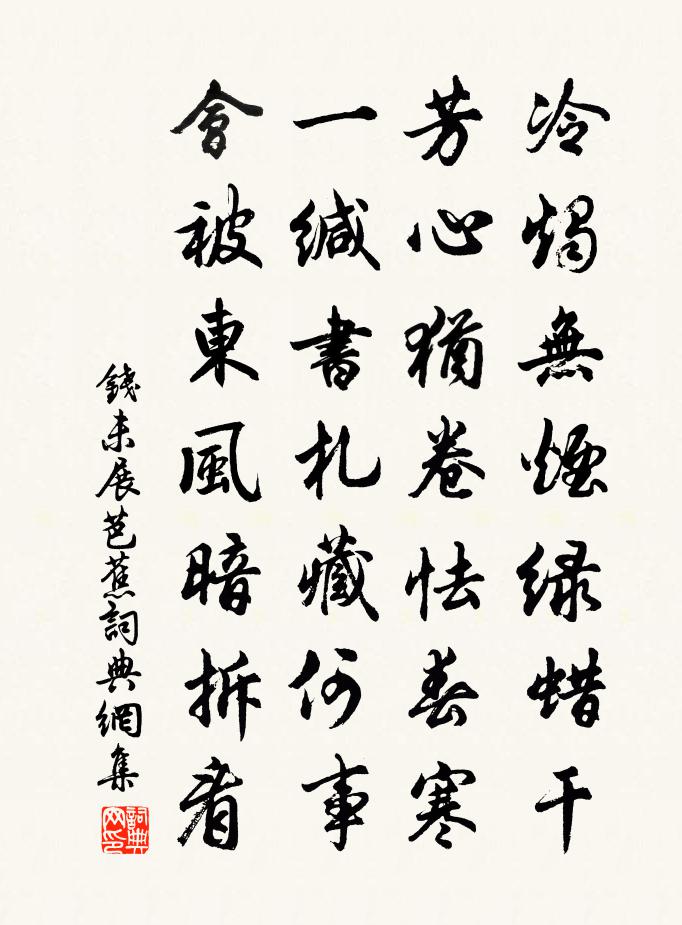 冷燭無煙緑蜡干
芳心猶卷怯春寒
一緘書札藏何事
會被東風暗拆看
錢未展芭蕉詞典網集
詞典網印